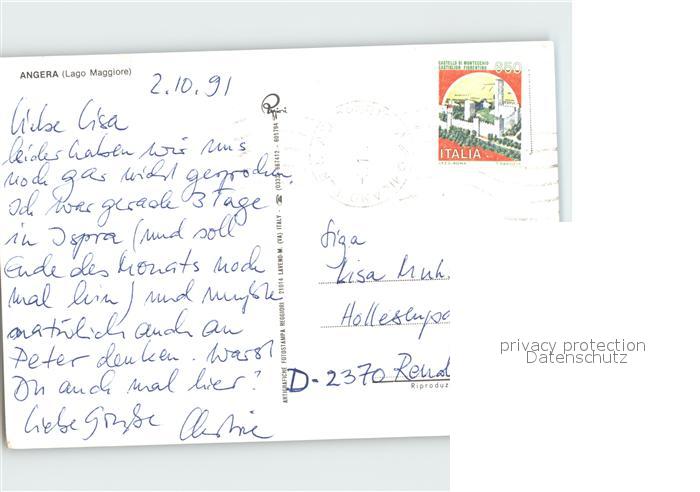 ANGERA (Lago Maggiore)
2.10.91
Liebe Lisa
leider haben wir uns
noch gar nicht gesprochen.
Ich war gerade 3 Tage
in Ispra (und soll
Ende des Monats noch
mal hin) und mußte
natürlich auch an
Peter denken. Warst
Du auch mal hier?
Liebe Grüße Christine
ARTIGRAFICHE FOTOSTAMPA REGGIORI - 21014 LAVENO-M. (VA) ITALY
CASTELLO DI MONTECCHIO
CASTIGLION FIORENTINO
650
ITALIA
Lisa Muh
D-2370 Rend
Riproduz
privacy protection
Datenschutz